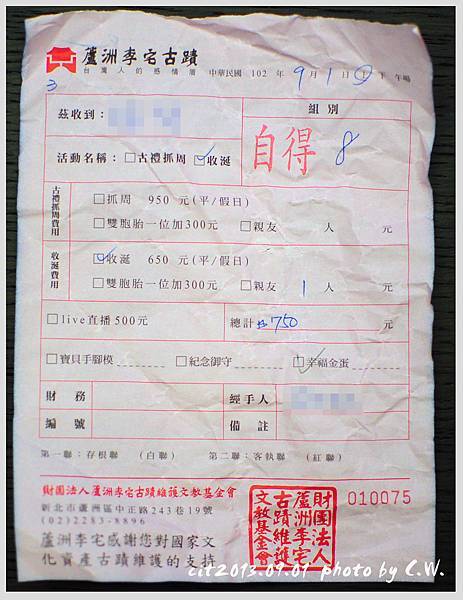 蘆洲李宅古蹟
台灣人的感情厝 中華民國 102 年 9 月 1 日 上 下 午場
3
茲收到：
組別
活動名稱：□古禮抓周 □收涎
自得 8
古禮抓周費用
□抓周 950 元(平/假日)
□雙胞胎一位加300元 □親友 人 元
收涎費用
□收涎 650 元(平/假日)
□雙胞胎一位加300元 □親友 1 人 元
□live直播500元 總計 750 元
□寶貝手腳模 □紀念御守 □幸福金蛋
財務 經手人
編號 備註
第一聯：存根聯 （白聯） 第二聯：客執聯 （紅聯）
財團法人蘆洲李宅古蹟維護文教基金會
新北市蘆洲區中正路243巷19號
(02)2283-8896
蘆洲李宅感謝您對國家文
化資產古蹟維護的支持
財團法人
蘆洲李宅
古蹟維護
文教基金會
010075
cit2013.09.01 photo by C.W.